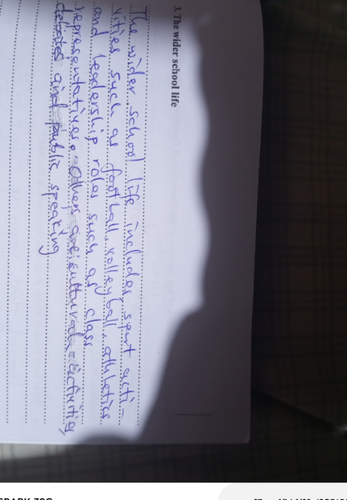 3. The wider school life
The wider school life includes sport acti-
vities such as football, volleyball, athletics
and leadership roles such as class
representatives. Others are cultural activities
debates and public speaking